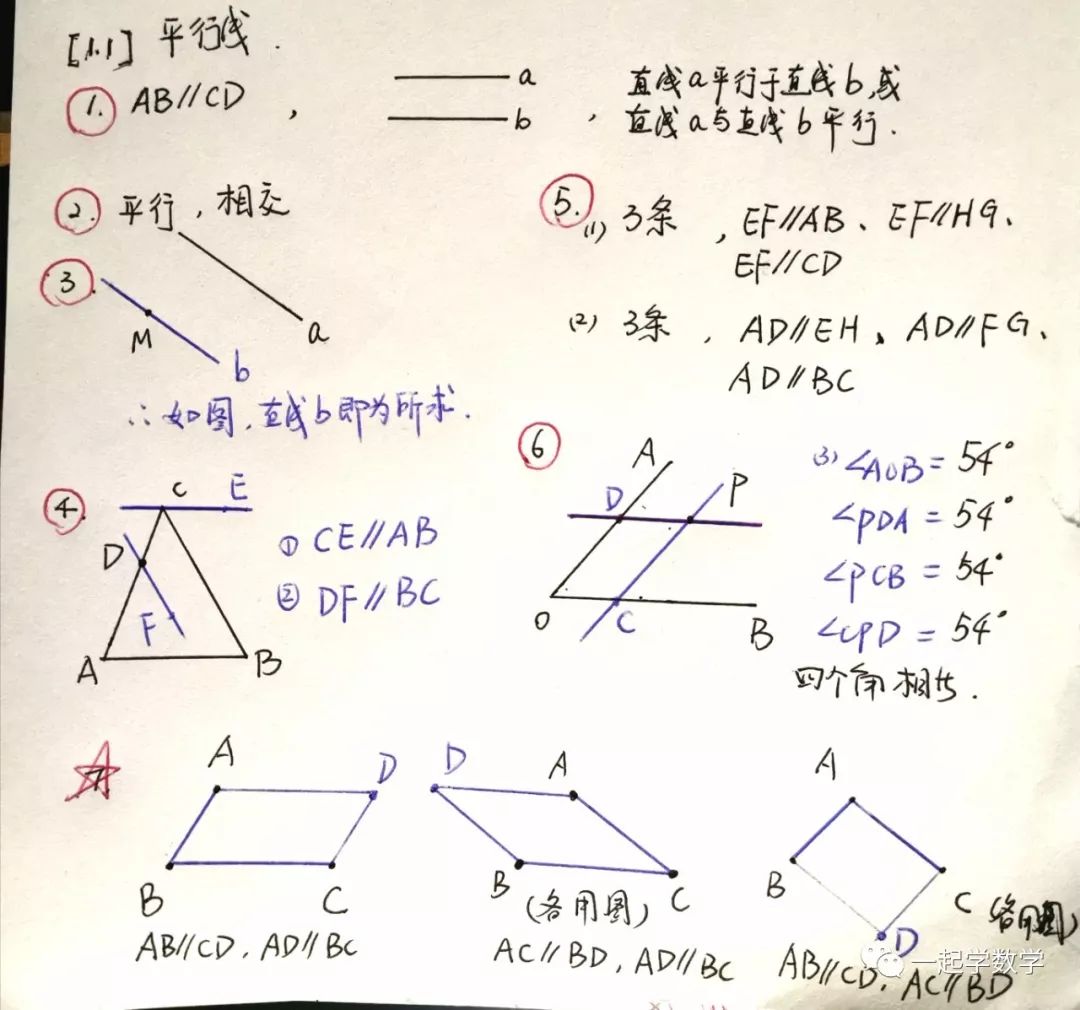 [1.1] 平行线.
1. AB//CD , a b , 直线a平行于直线b,或
直线a与直线b平行.
2. 平行,相交
3. M b a
∴如图,直线b即为所求.
4. C E D F A B
① CE//AB
② DF//BC
5. (1) 3条 , EF//AB、EF//HG、
EF//CD
(2) 3条 , AD//EH、AD//FG、
AD//BC
6 A D P O C B
(3) ∠AOB = 54°
∠PDA = 54°
∠PCB = 54°
∠CPD = 54°
四个角相等.
7
A D B C
AB//CD, AD//BC
D A B C
(备用图)
AC//BD, AD//BC
A B C D
(备用图)
AB//CD, AC//BD
一起学数学